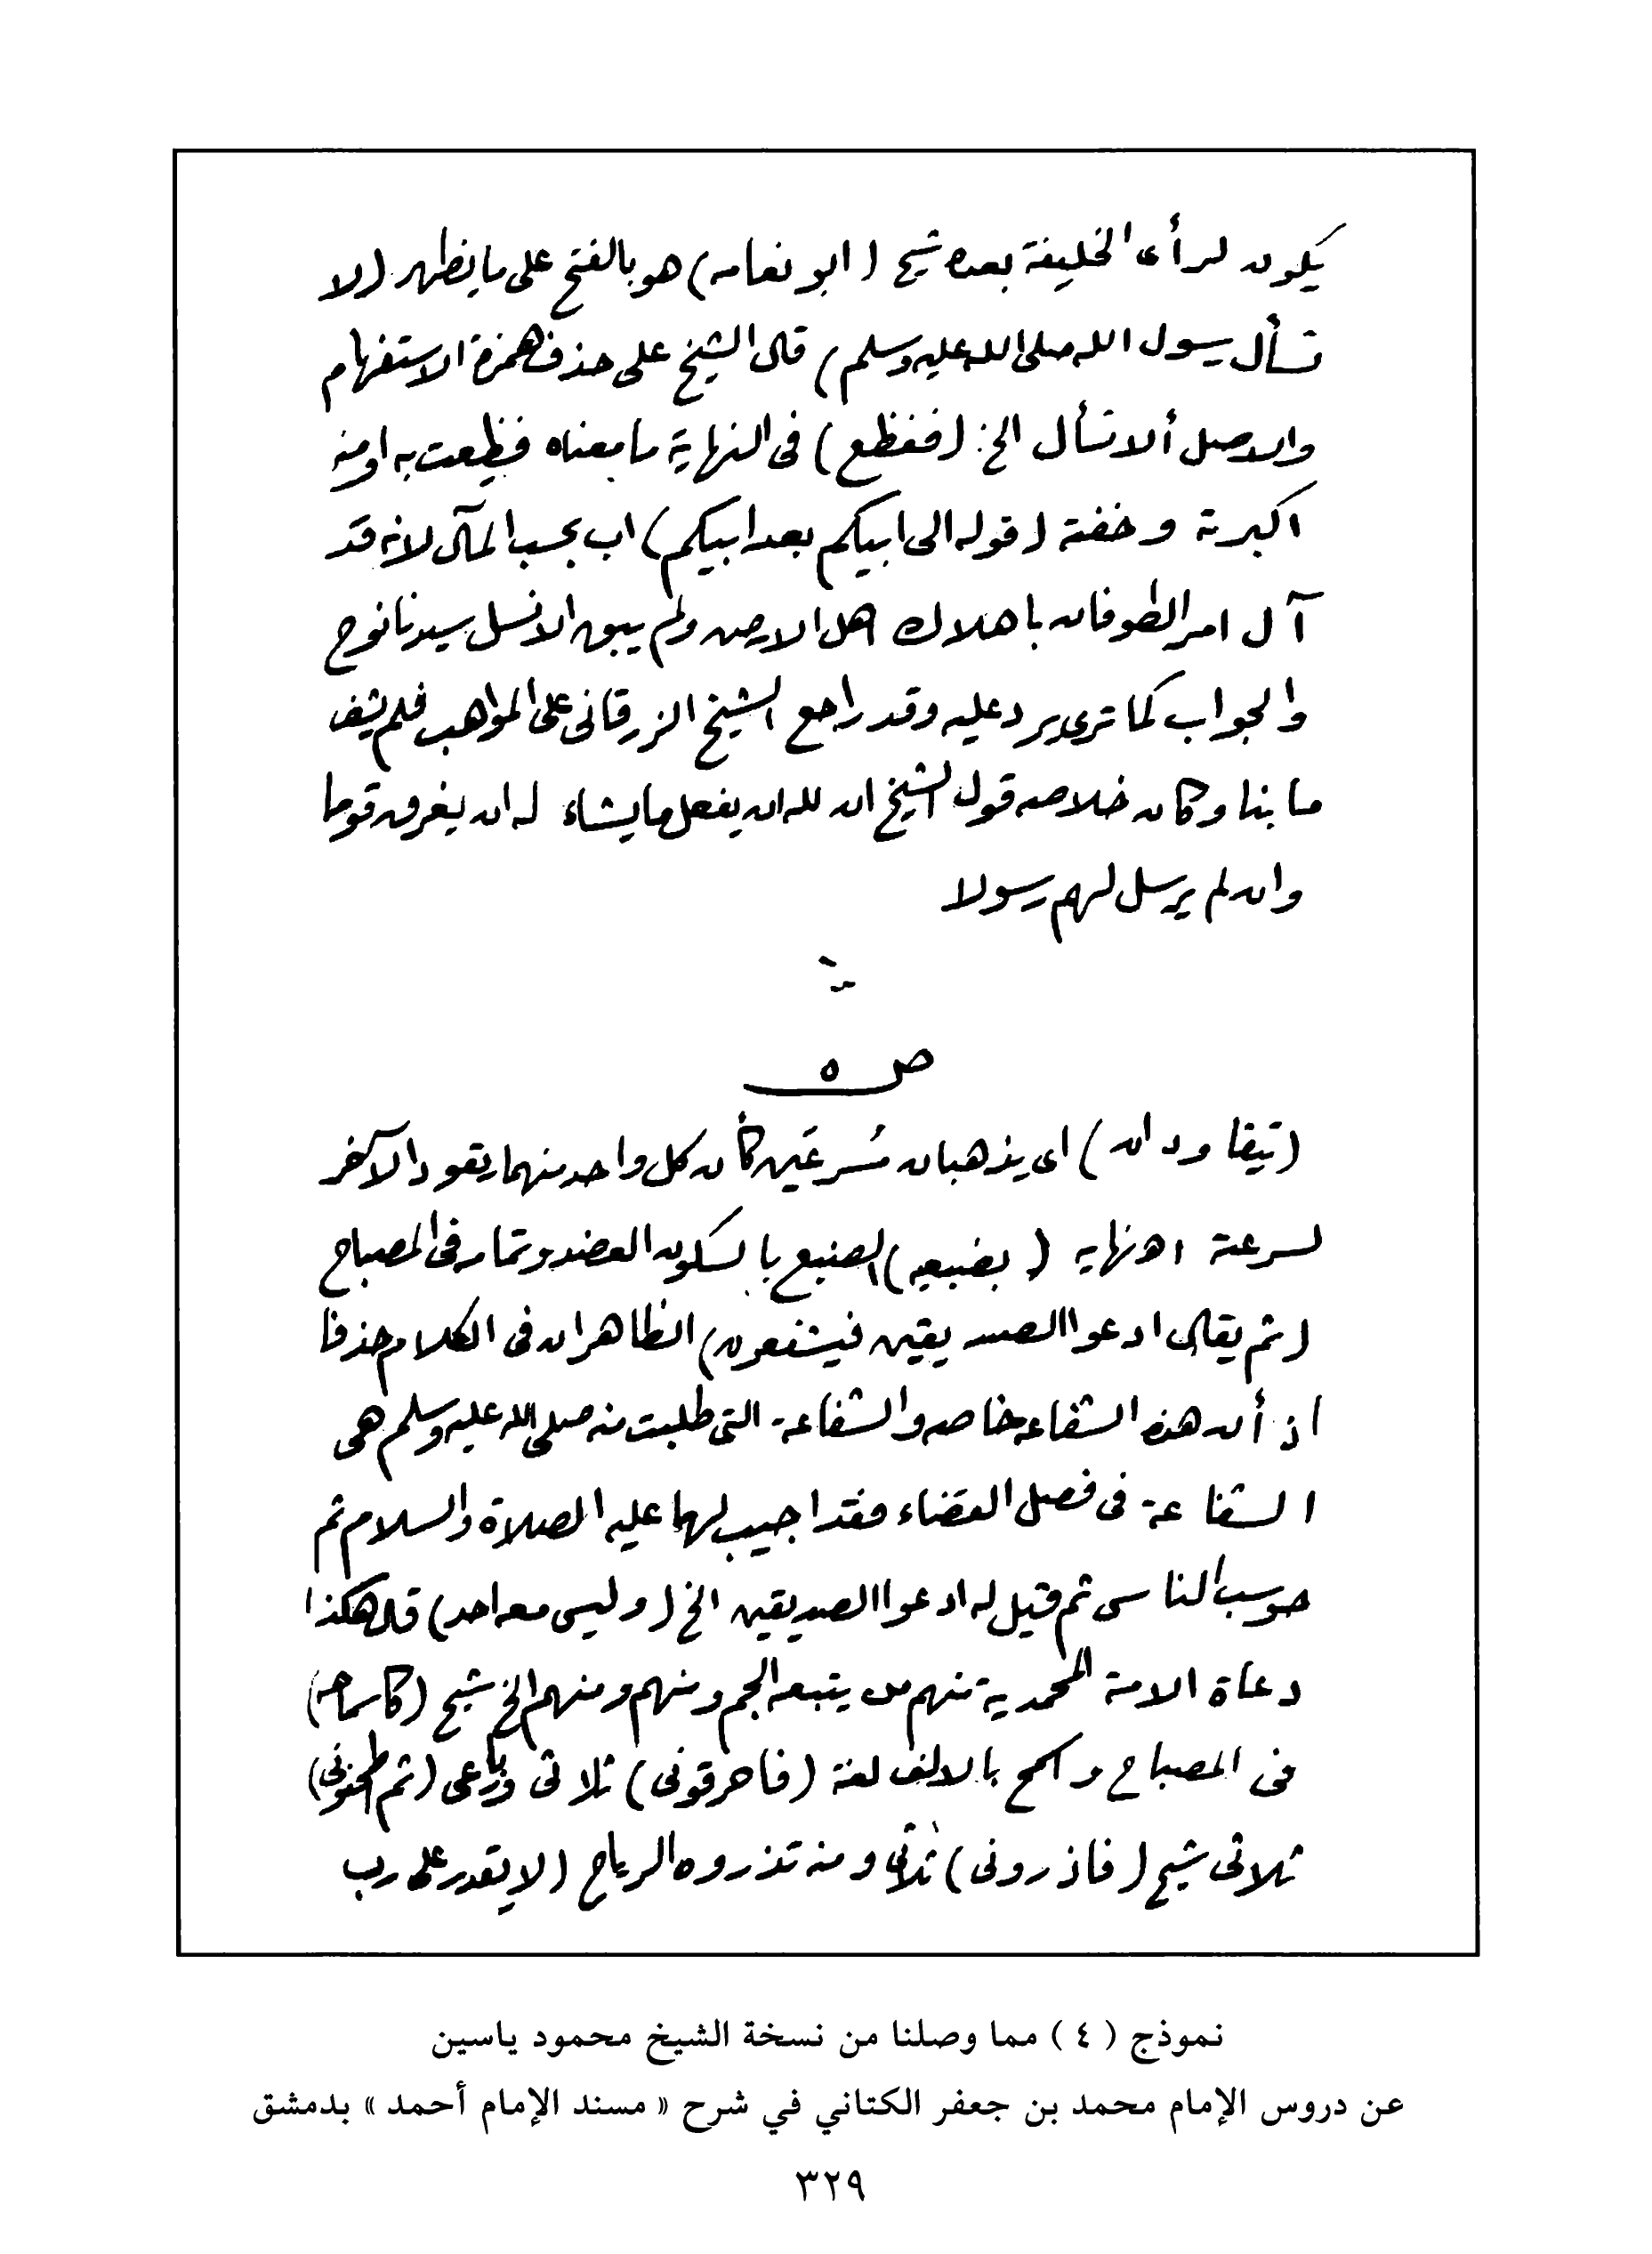 يكون لرأى الخليفة بعده شيخ (ابو نعامه) هو بالفتح على ما يظهر (لا
تسأل رسول الله صلى الله عليه وسلم) قال الشيخ على حذف همزة الاستفهام
والاصل ألا تسأل الخ: (ففظع) فى النهاية ما معناه فظعت به او منه
اكبرته وخفته (قوله الى ابيكم بعد ابيكم) اب بحسب المآل لانه قد
آل امر الطوفان باهلاك اهل الارض ولم يبق الا نسل سيدنا نوح
والجواب كما ترى يرد عليه وقد راجع الشيخ الزرقانى على المواهب فلم يشف
ما بنا وكان خلاصه قول الشيخ ان لله ان يفعل ما يشاء له ان يغرق قوما
وان لم يرسل لهم رسولا
ص ٥
(تيقاودان) اى يذهبان مُسرعَين كأن كل واحد منهما يقود الآخر
لسرعته اه نهايه (بضبعيه) الضبع بالسكون العضد وتمامه فى المصباح
(ثم يقال ادعوا الصديقين فيشفعون) الظاهر ان فى الكلام حذفا
اذ أن هذه الشفاعه خاصه والشفاعة التى طلبت منه صلى الله عليه وسلم هى
الشفاعة فى فصل القضاء فقد اجيب لها عليه الصلاة والسلام ثم
حوسب الناس ثم قيل له ادعوا الصديقين الخ (وليس معه احد) قال هكذا
دعاة الامة المحمدية منهم من يتبعه الجم ومنهم ومنهم الخ شيخ (كاسمح)
فى المصباح واسمح بالالف لغة (فاحرقونى) ثلاثى ورباعى (ثم اطحنونى)
ثلاثى شيخ (فاذرونى) ثلاثى ومنه تذروه الرياح (لا يقدر على رب
نموذج ( ٤ ) مما وصلنا من نسخة الشيخ محمود ياسين
عن دروس الإمام محمد بن جعفر الكتاني في شرح « مسند الإمام أحمد » بدمشق
٣٢٩